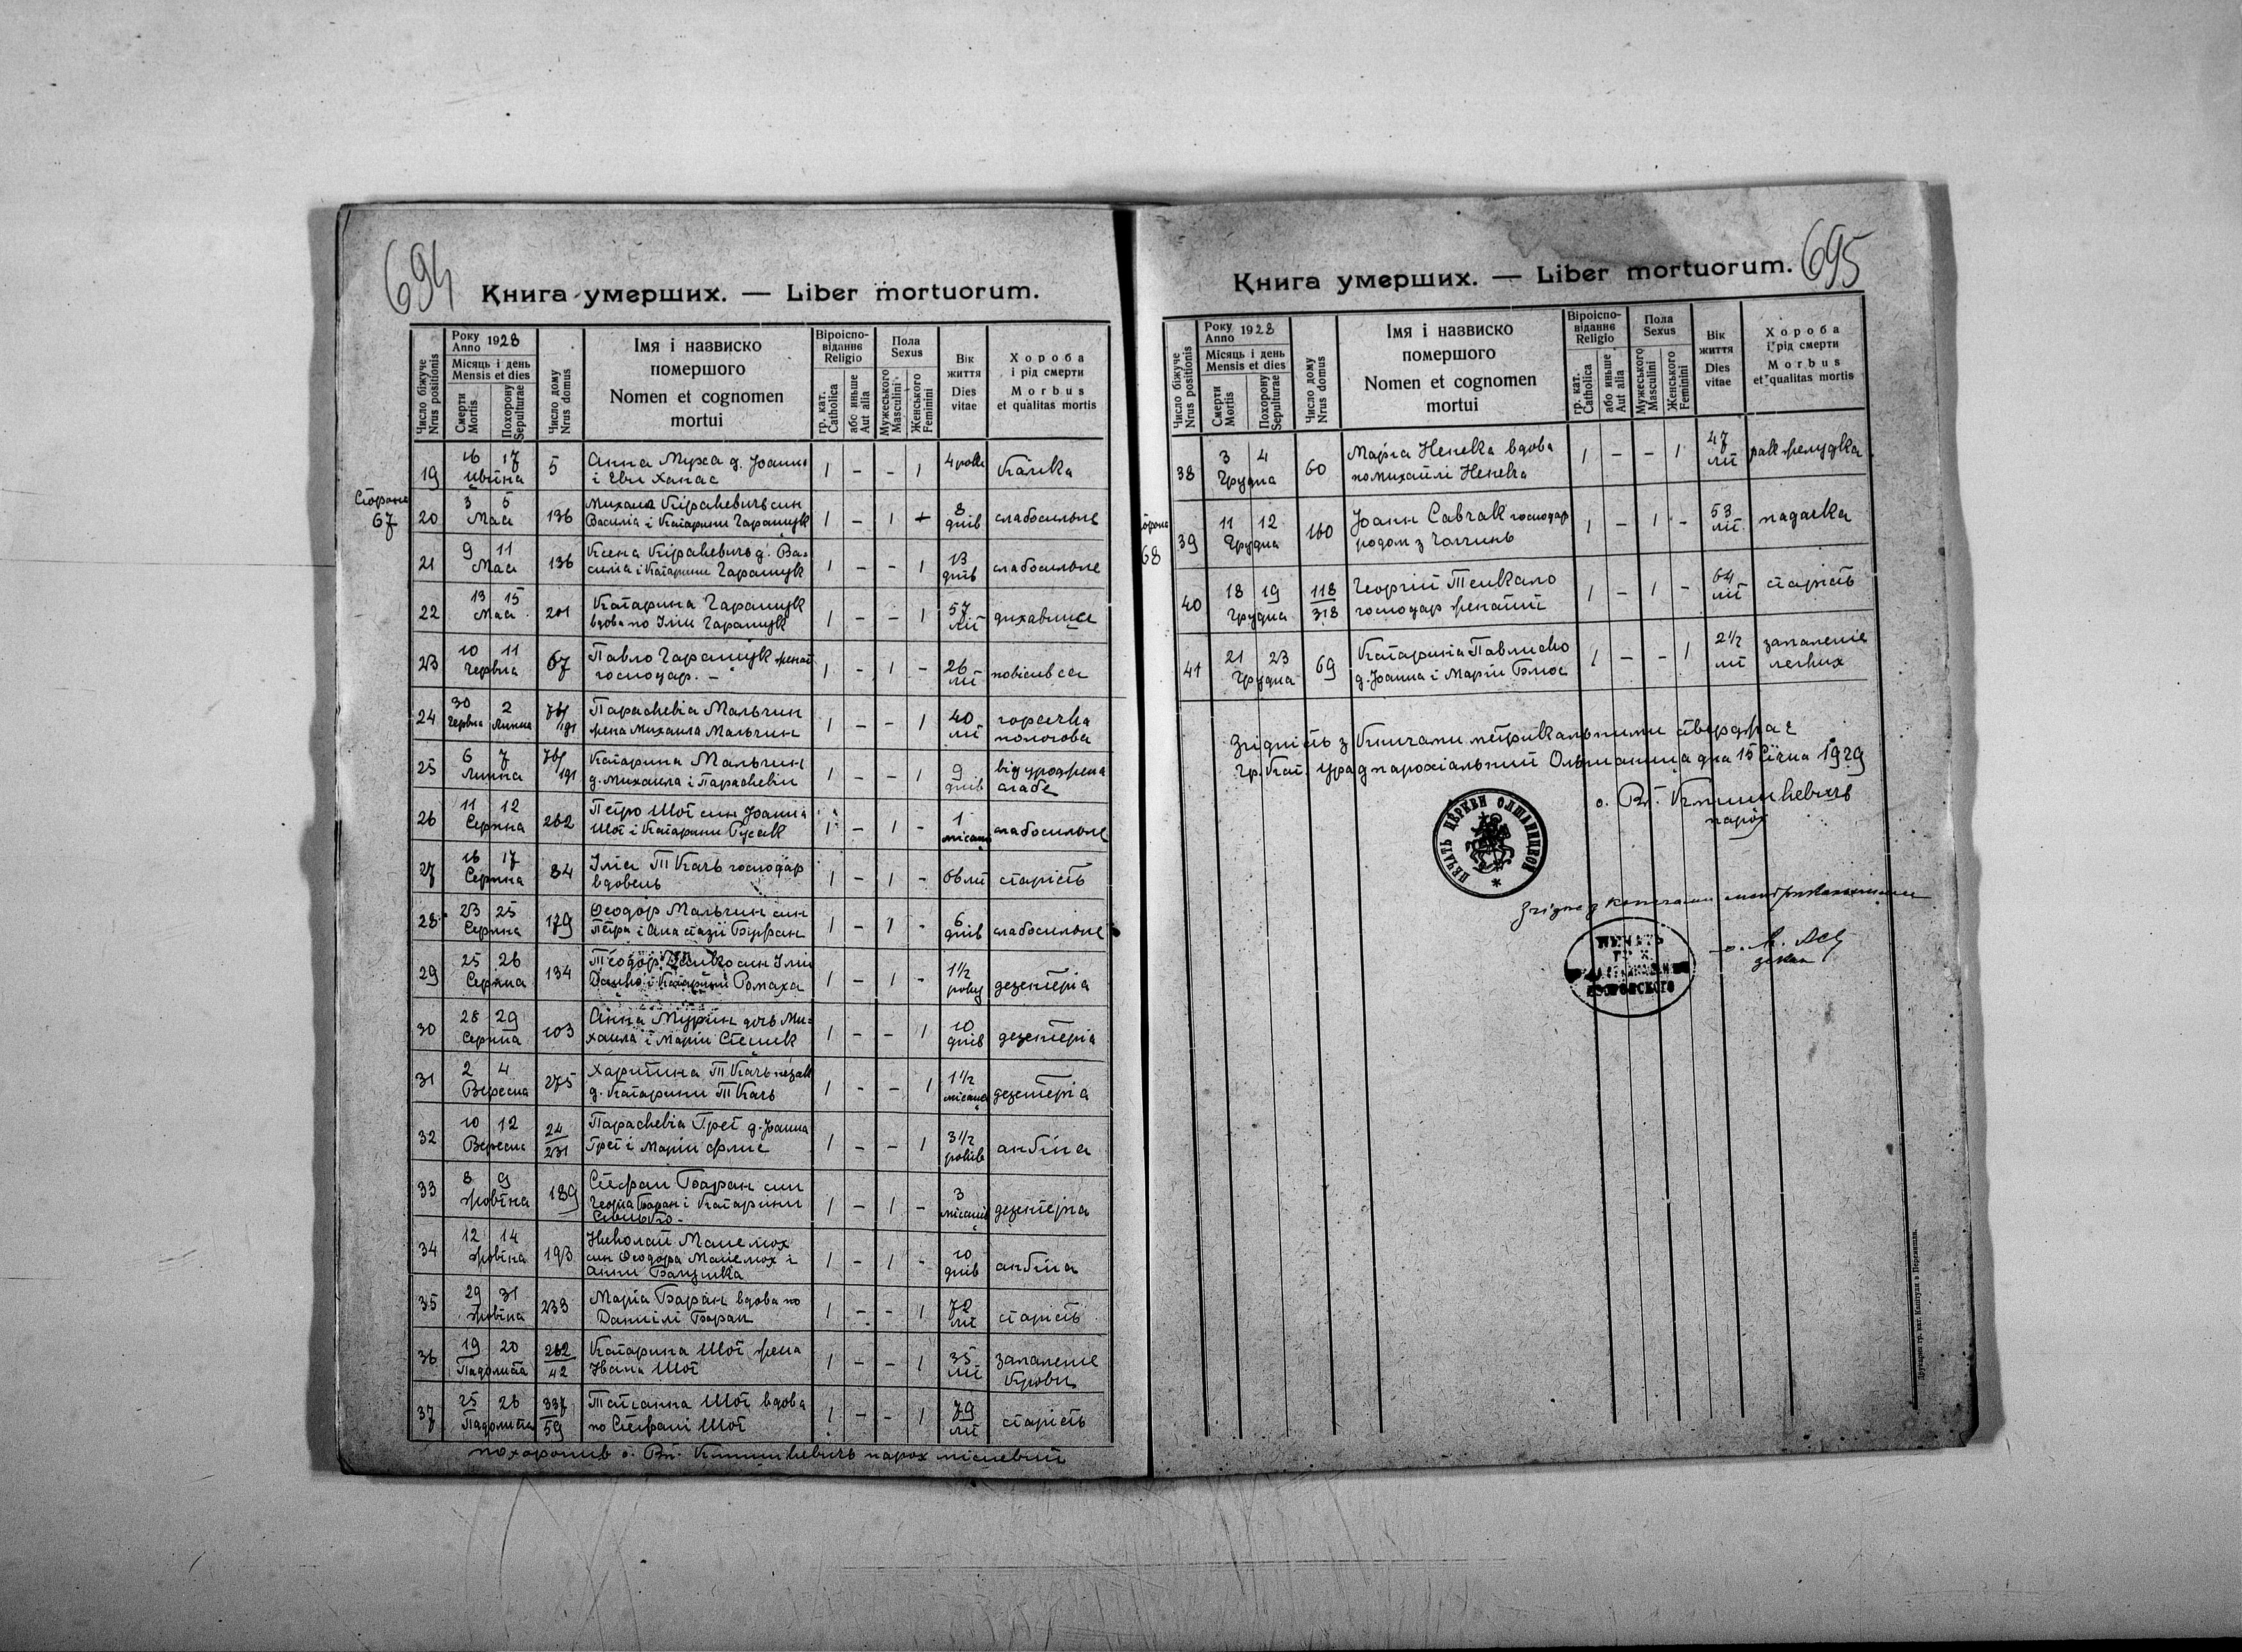 694
Книга умерших. — Liber mortuorum.
Число біжуче
Nrus positionis
Року
Anno 1928
Місяць і день
Mensis et dies
Смерти
Mortis
Похорону
Sepulturae
Число дому
Nrus domus
Імя і назвиско
помершого
Nomen et cognomen
mortui
Віроіспо-
віданнє
Religio
гр. кат.
Catholica
або иньше
Aut alia
Пола
Sexus
Мужеського
Masculini
Женського
Feminini
Вік
життя
Dies
vitae
Хороба
і рід смерти
Morbus
et qualitas mortis
19 16 17 Цвітна 5 Анна Муха д. Йоанна і Еви Ханас 1 – – 1 4 роки
Сторона
67
20 3 5 Мая 136 Василія і Катарини Гаращук 1 – 1 8 днів слабосильне
21 9 11 Мая 136 Ксена д. Ва-
силія і Катарини Гаращук 1 – – 1 13 днів слабосильне
22 13 15 Мая 201 Катарина Гаращук
вдова по Ілії Гаращук 1 – – 1 57 літ дихавиця
23 10 11 Червня 67 Павло Гаращук
господар. – 1 – 1 – 26 літ повісився
24 30 Червня 2 Липня 191 Параскевія Мальчин
жена Михаила Мальчин 1 – – 1 40 літ горячка
пологова
25 6 7 Липня 191 Катарина Мальчин
д. Михаила і Параскевії 1 – – 1 9 днів від уродженя
слабе
26 11 12 Серпня 262 Петро Шот син Йоанна
Шот і Катарини Гусак 1 – 1 – 1 місяць слабосильне
27 16 17 Серпня 84 Ілія Ткачь господар
вдовець 1 – 1 – літ старість
28 23 25 Серпня 179 Феодор Мальчин син
Петра і Анастазії 1 – 1 – 6 днів слабосильне
29 25 26 Серпня 134 Теодор син Ілії
і Катарини Ромаха 1 – 1 – 1½ року дезентерія
30 28 29 Серпня 103 Анна Мурин дочь Ми-
хаила і Марії Стецик 1 – – 1 10 днів дезентерія
31 2 4 Вересня 275 Харитина Ткачь
д. Катарини Ткачь 1 – – 1 1½ місяця дезентерія
32 10 12 Вересня 24/231 Параскевія Грет д. Йоанна
Грет і Марії 1 – – 1 3½ років ангіна
33 8 9 Жовтня 189 Стефан Баран син
Георгія Баран і Катарини
1 – 1 – 3 місяців дезентерія
34 12 14 Жовтня 193 Николай
син Феодора і
Анни 1 – 1 – 10 днів ангіна
35 29 31 Жовтня 233 Марія Баран вдова по
Даниілі Баран 1 – – 1 72 літ старість
36 19 20 Падолиста 262/42 Катарина Шот жена
Івана Шот 1 – – 1 35 літ запаленіє
крови
37 25 26 Падолиста 337/59 Татіанна Шот вдова
по Стефані Шот 1 – – 1 79 літ старість
похоронив о. Вл. парох місцевий
695
Книга умерших. — Liber mortuorum.
Число біжуче
Nrus positionis
Року
Anno 1928
Місяць і день
Mensis et dies
Смерти
Mortis
Похорону
Sepulturae
Число дому
Nrus domus
Імя і назвиско
помершого
Nomen et cognomen
mortui
Віроіспо-
віданнє
Religio
гр. кат.
Catholica
або иньше
Aut alia
Пола
Sexus
Мужеського
Masculini
Женського
Feminini
Вік
життя
Dies
vitae
Хороба
і рід смерти
Morbus
et qualitas mortis
38 3 4 Грудня 60 Марія Ненека вдова
по Михайлі Ненека 1 – – 1 47 літ рак желудка
68
39 11 12 Грудня 160 Йоанн Савчак господар
родом з 1 – 1 – 53 літ падачка
40 18 19 Грудня 118/318 Георгій
господар женатий 1 – 1 – 64 літ старість
41 21 23 Грудня 69 Катарина Павлисько
д. Йоанна і Марії 1 – – 1 2½ літ запаленіє
легких
Згідність з Книгами метрикальними стверджає
Гр. Кат. Уряд парохіяльний Ольшаниця дня 15 Січня 1929
о. Вл.
парох
ПЕЧАТЬ ЦЕРКВИ ОЛШАНИЦКОЙ
Згідне з книгами метрикальними
о.
декан
ПЕЧАТЬ
Друкарня гр. кат. Капітули в Перемишли.